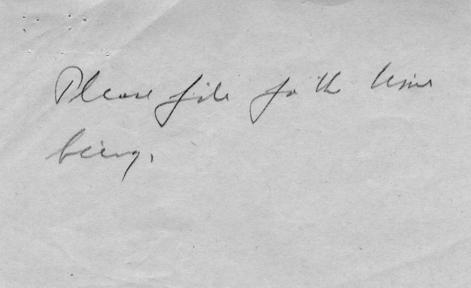 Please file for the time
being.